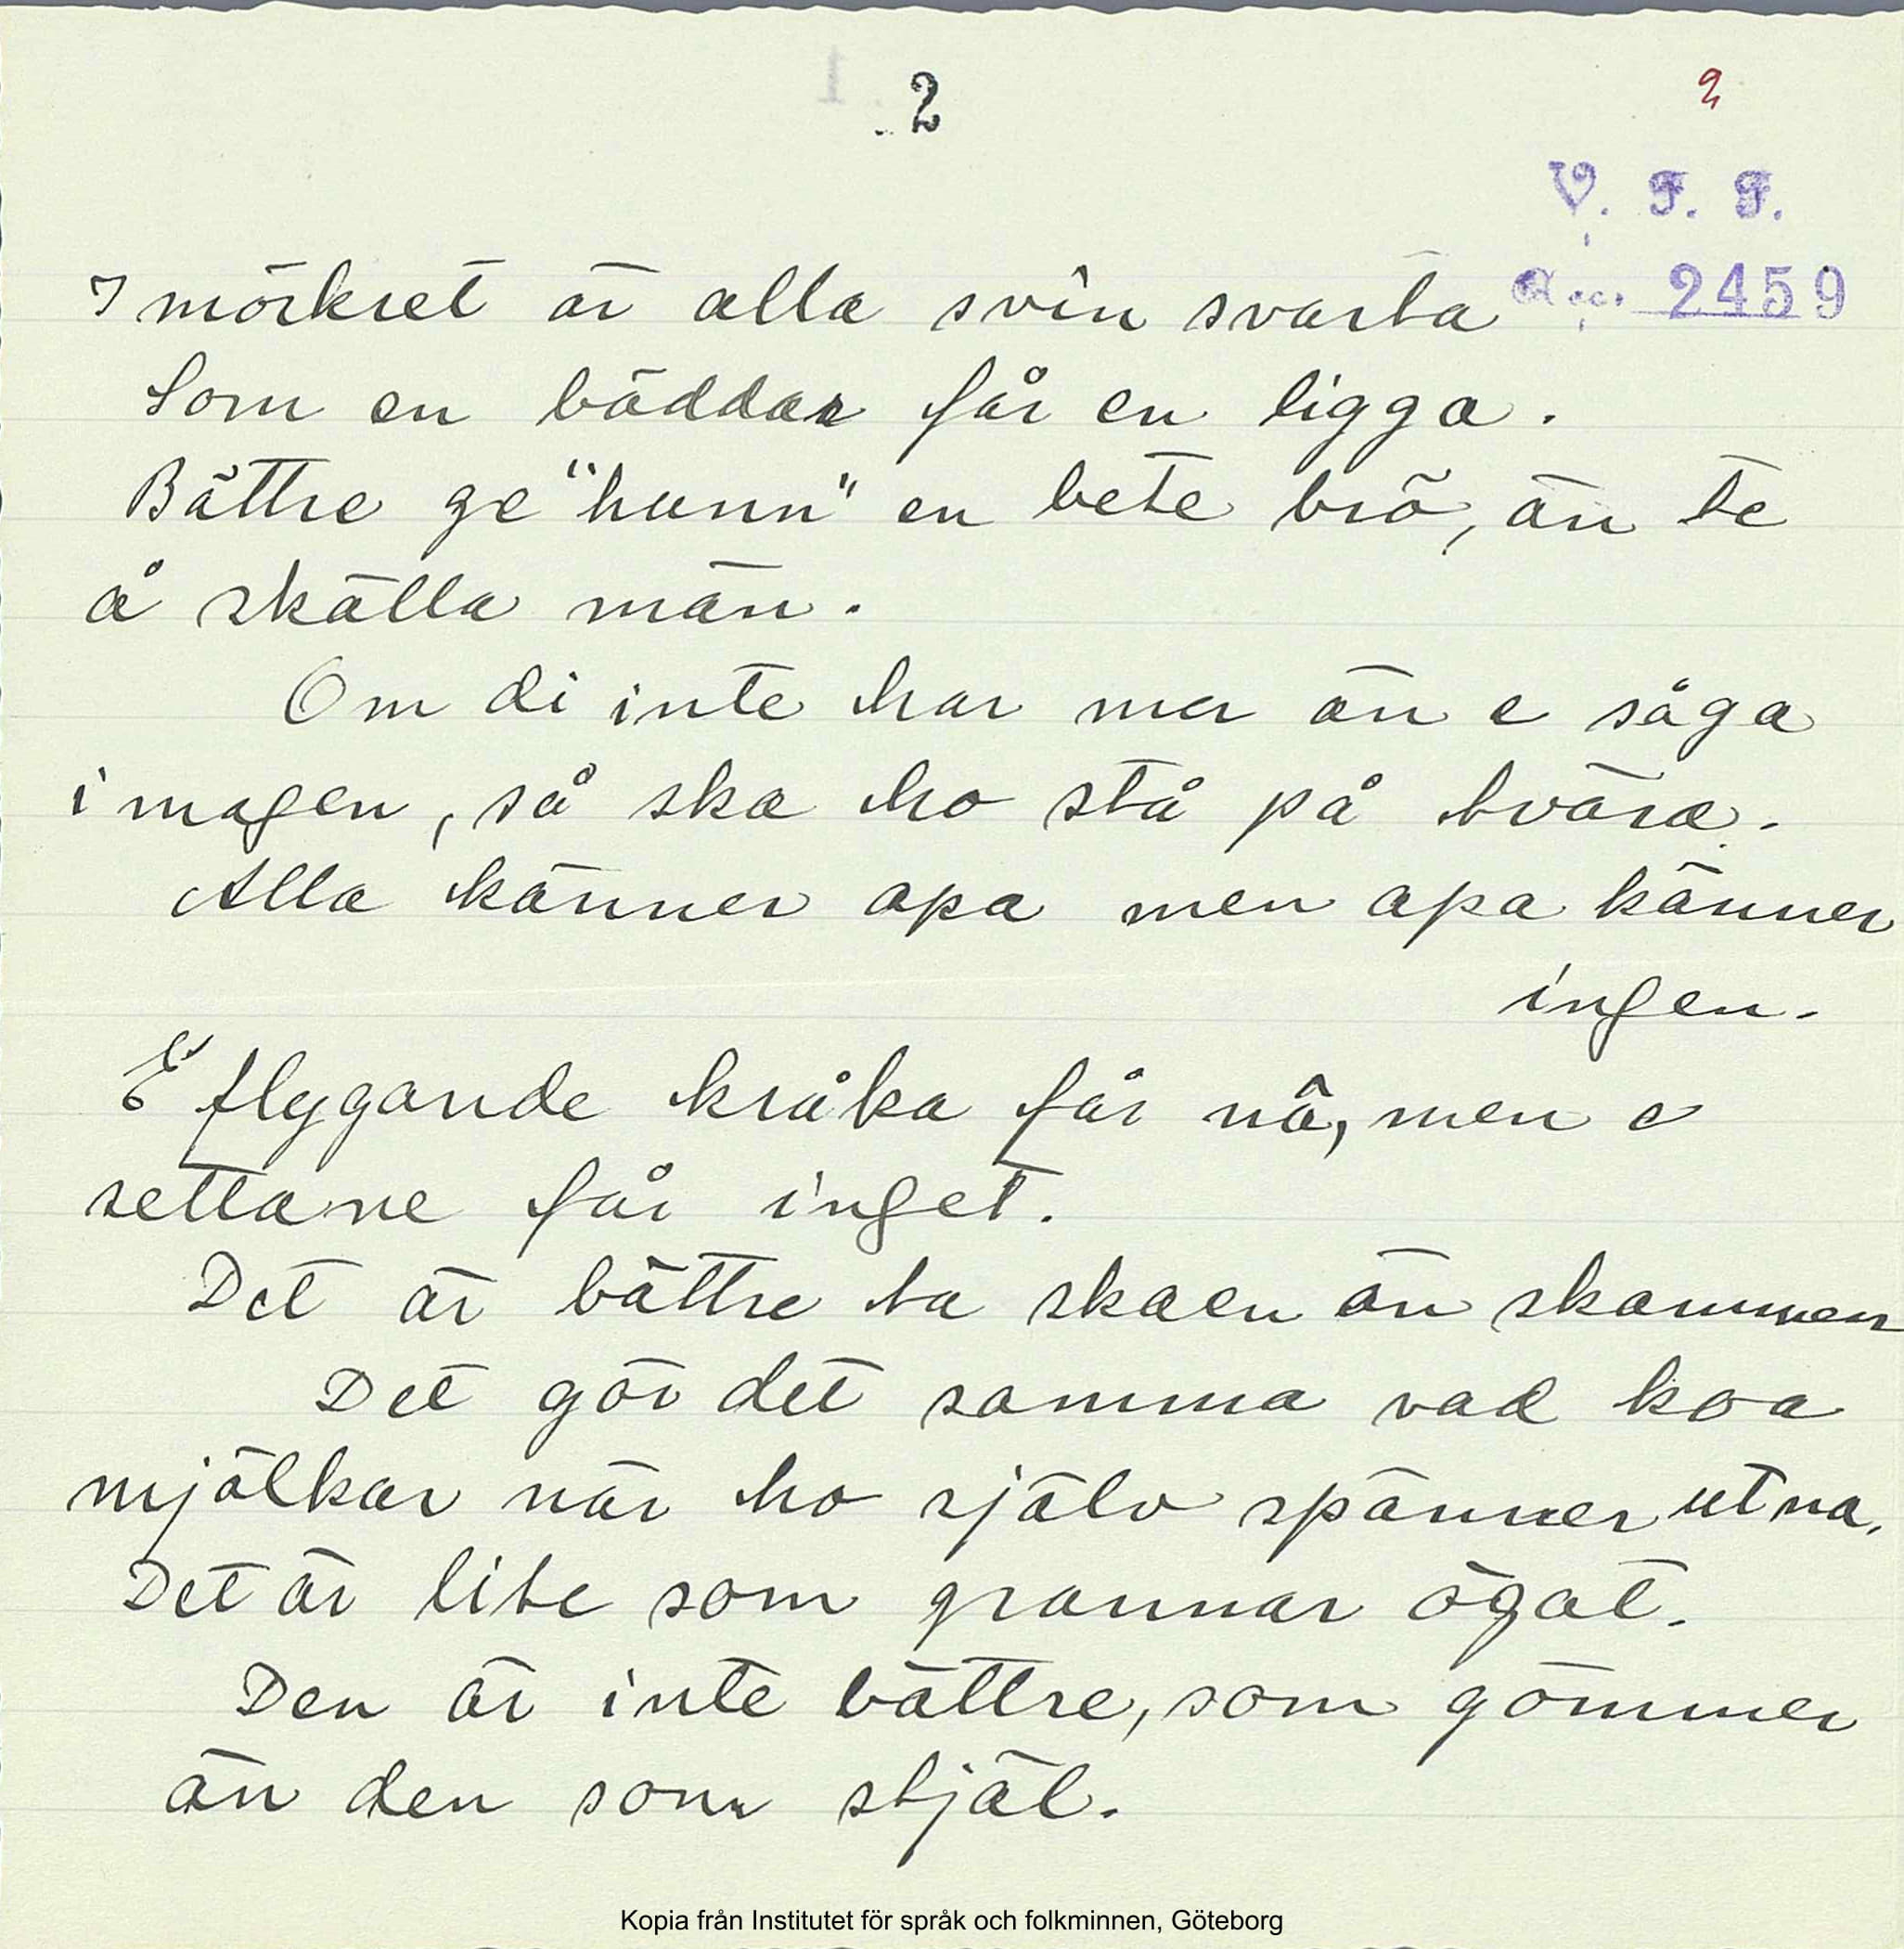 2
2
V. F. F.
Acc. 2459
I mörkret är alla svin svarta
Som en bäddar får en ligga.
Bättre ge "hunn" en bete brö, än te
å skälla män.
Om di inte har mer än e såga
i magen, så ska ho stå på tvära.
Alla känner apa men apa känner
ingen.
E flygande kråka får nå, men e
settane får inget.
Det är bättre ta skaen än skammen
Det gör det samma vad koa
mjölkar när ho själv spänner ut na.
Det är lite som grannar ögat.
Den är inte bättre, som gömmer
än den som stjäl.
Kopia från Institutet för språk och folkminnen, Göteborg